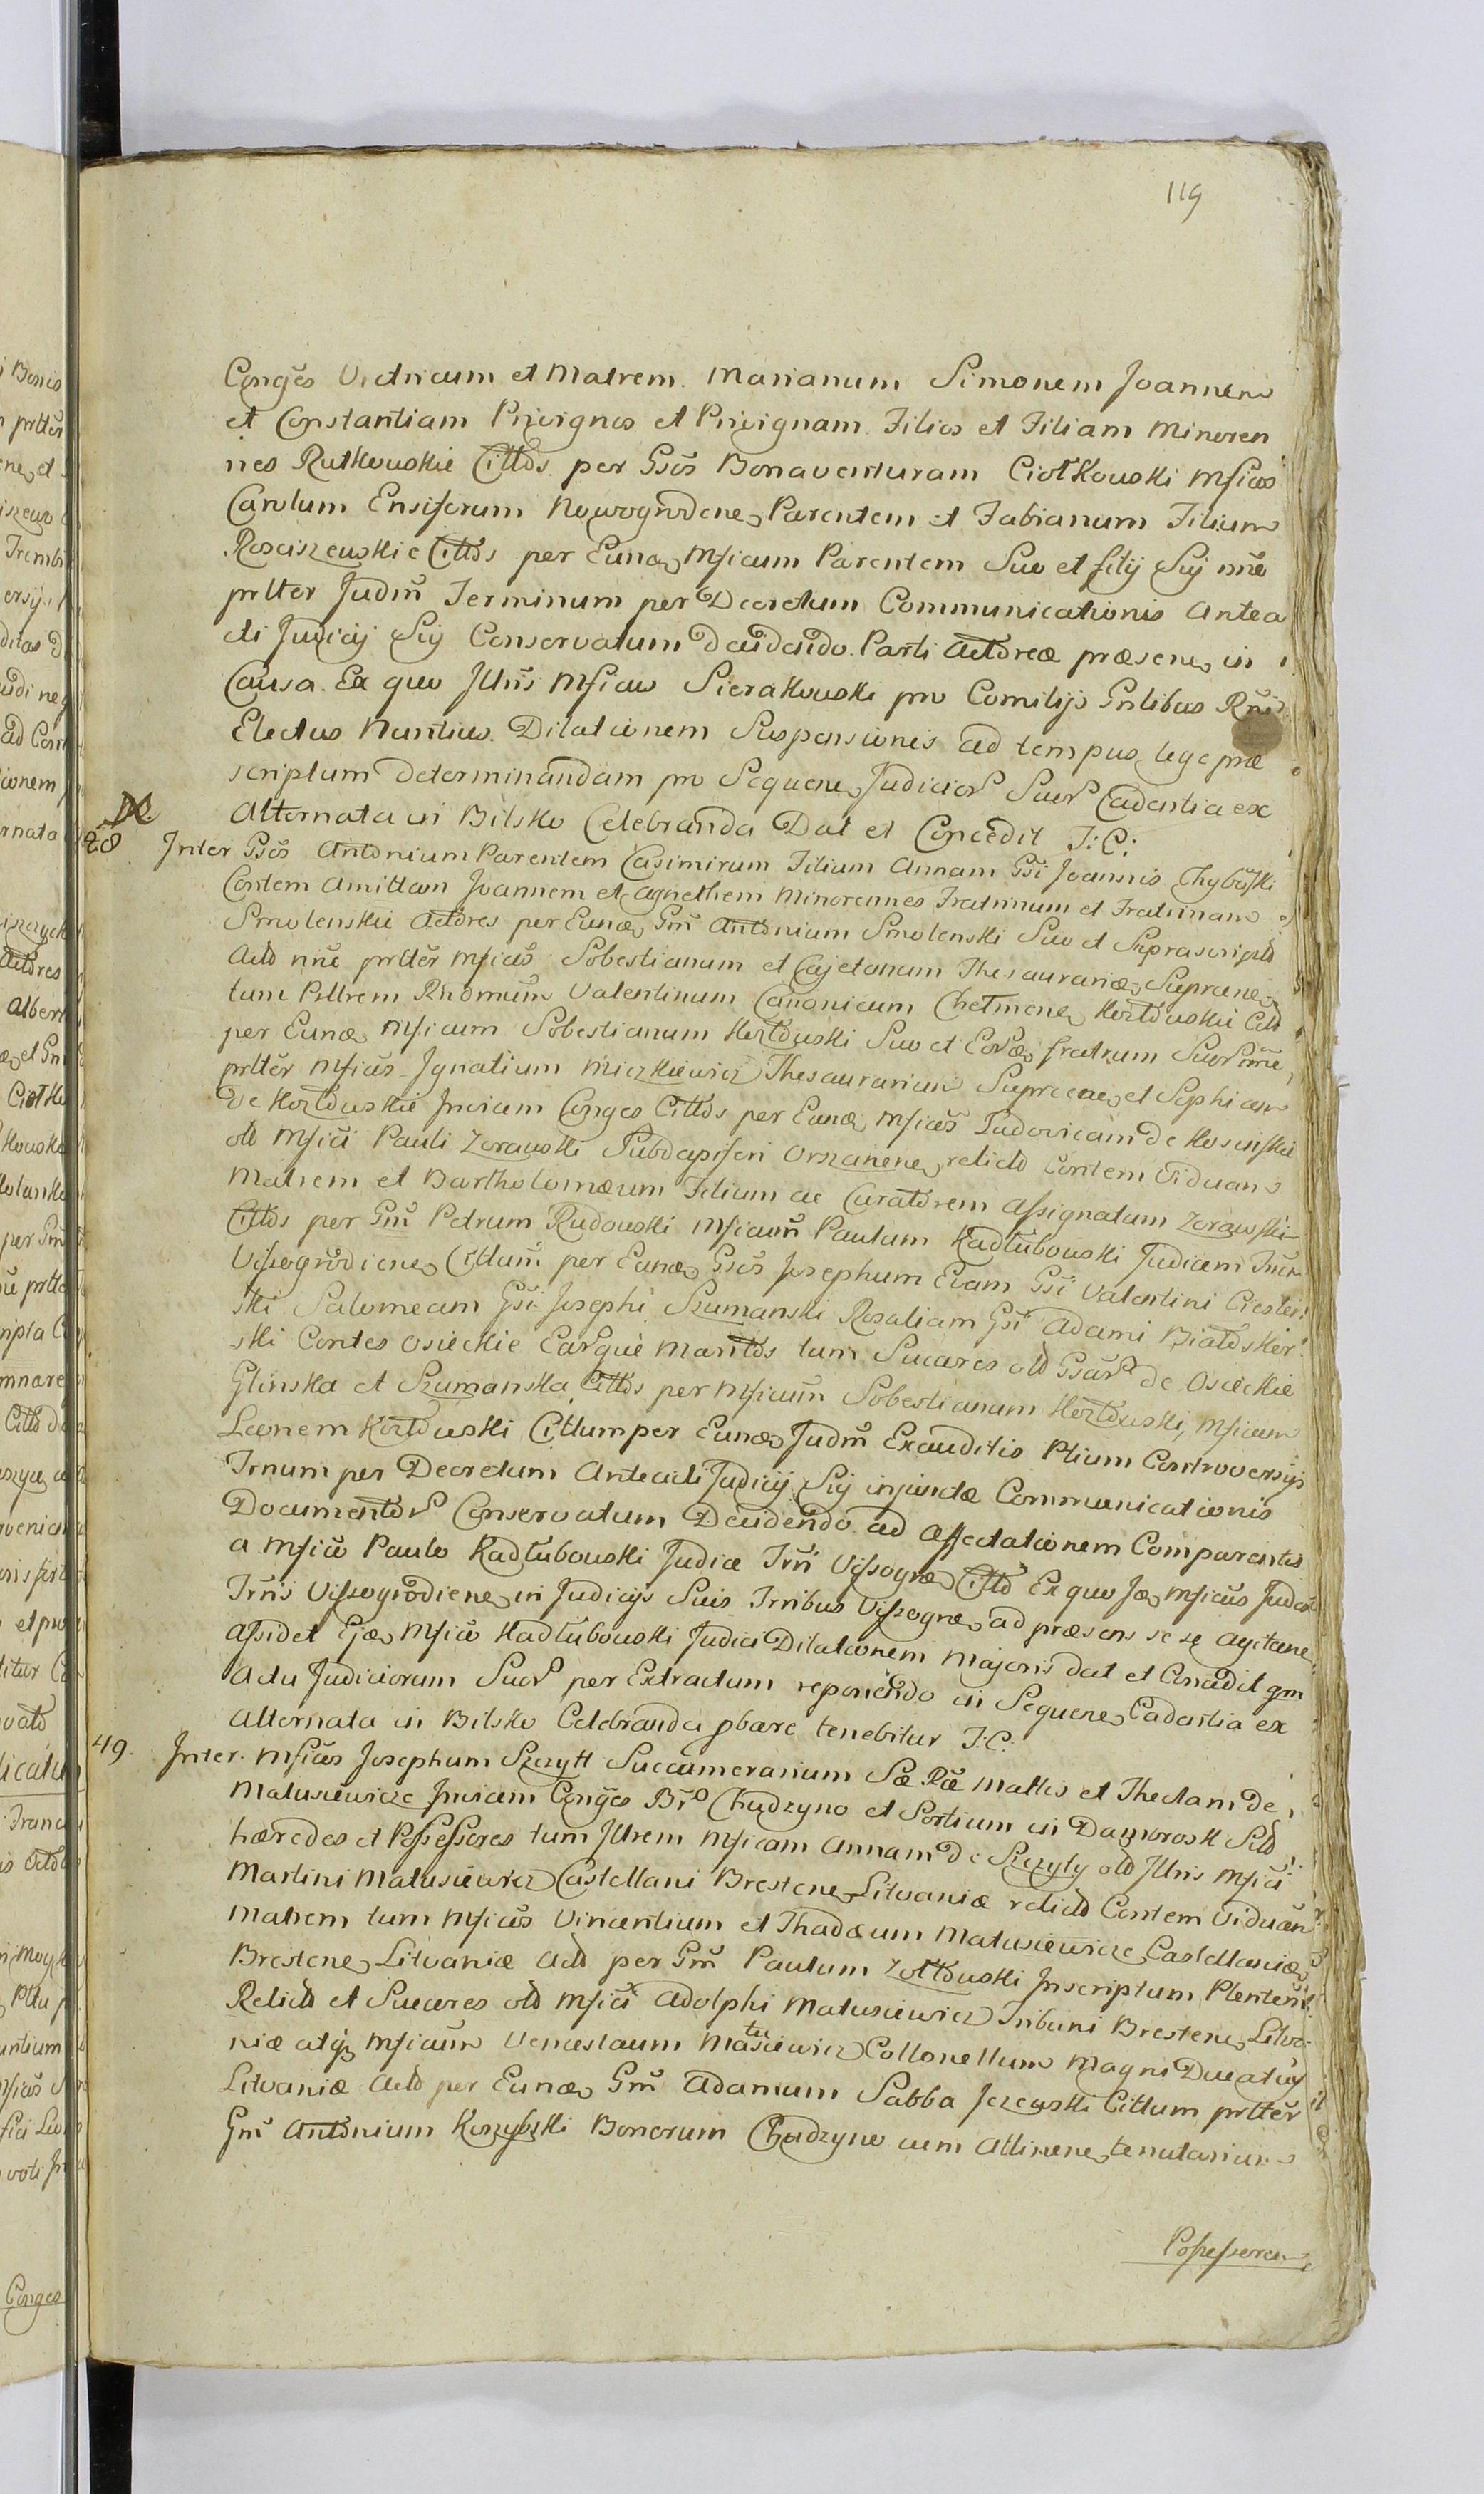 119
Conges Vitricum et Matrem. Marianum Simonem Joannem
et Constantiam Privignos et Privignam Filios et Filiam Minoren
nes Rutkowskie Cittos per Gsos Bonaventuram Ciołkowski Mficos
Carolum Ensiferum Nowogrodenes Parentem et Fabianum Filium
Rosciszewskie Cittos per Eundes Mficum Parentem Suo et filij Sui nne
prltter Judm Terminum per Decretum Communicationis Antea
cti Judicij Sui Conservatum Decidendo Parti Actoreæ præsenes in
Causa. Ex quo Jllris Mficus Sierakowski pro Comitijs Gnlibus Rni
Electus Nuntius. Dilationem Suspensionis ad tempus lege præ
scriptum Determinandam pro Sequenes Judicior Suor Cadentia ex
Alternata in Bilsko Celebranda Dat et Concedit J: C:
28 Inter Gsos Antonium Parentem Casimirum Filium Annam Gsi Joannis Chybowski
Contem Amittam Joannem et Agnethem Minorennes Fratrinum et Fratrinam
Smolenskie Actores per Eundes Gm Antonium Smolenski Suo et Suprascripto
Acto nne prltter Mficos Sobestianum et Cajetanum Thesaurarios Supranes
tum Pllrem Rndmum Valentinum Canonicum Chelmenes Kozłowskie Citt
per Eundes Mficum Sobestianum Kozłowski Suo et Eordes fratrum Suor nne
prltter Mficos Ignatium Mierzkiewicz Thesaurarium Supracenes et Sophiam
de Kozłowskie Invicem Conges Cittos per Eundes Mficos Ludovicam de Kosinskie
olt Mfici Pauli Zorawski Subdapiferi Orszanenes relicto Contem Viduam
Matrem et Bartholomæum Filium ac Curatorem Assignatum Zorawski
Cittos per Gm Petrum Rudowski Mficum Paulum Kadłubowski Judicem Trren
Vissogrodienes Cittum per Eundes Gsos Josephum Evam Gsi Valentini
ski Salomeam Gsi Josephi Szumanski Rosaliam Gsi Adami
ski Contes Osieckie Earque Maritos tum Sucares olt Gsar de Osieckie
Glinska et Szumanska Cittos per Mficum Sobestianum Kozłowski, Mficum
Leonem Kozłowski Cittum per Eundes Judm Exauditis Ptium Controversijs
Trnum per Decretum Anteacti Judicij Sui injunctæ Communicationis
Documentor Conservatum Decidendo ad Affectationem Comparentis
a Mfico Paulo Kadłubowski Judice Trri Vissogræ Citto Ex quo Jdes Mficus Judex
Trris Vissogrodienes in Judicijs Suis Trribus Vissogræ ad præsens se se Agitanes
Assidet Ejdes Mfico Kadłubowski Judici Dilationem Majoris dat et Concedit qm
Actu Judiciorum Suor per Extractum reponendo in Sequenes Cadentia ex
Alternata in Bilsko Celebranda pbare tenebitur J: C:
49. Inter Mficos Josephum Szczytt Succamerarium Sæ Ræ Mattis et Theclam de
Matusiewicze Invicem Conges Br Chudzyno et Sortium in Dambrosk Sto
hæredes et Possessores tum Jllrem Mficam Annam de Szczyty olt Jllris Mfici
Martini Matusiewicz Castellani Brestenes Litvaniæ relicto Contem Viduam
Matrem tum Mficos Vincentium et Thadæum Matusiewicze Castellanidæ
Brestenes Litvaniæ Acto per Gm Paulum Zołtowski Inscriptum Plentem
Relicto et Sucares olt Mfici Adolphi Matusiewicz Tribuni Brestenes Litva
niæ atq Mficum Venceslaum Matusiewicz Collonellum Magni Ducatus
Litvaniæ Acto per Eundes Gm Adamum Sabba Jezewski Cittum prltter
Gm Antonium Koszybski Bonorum Chudzyno cum Attinenes tenutarium
Possessorem